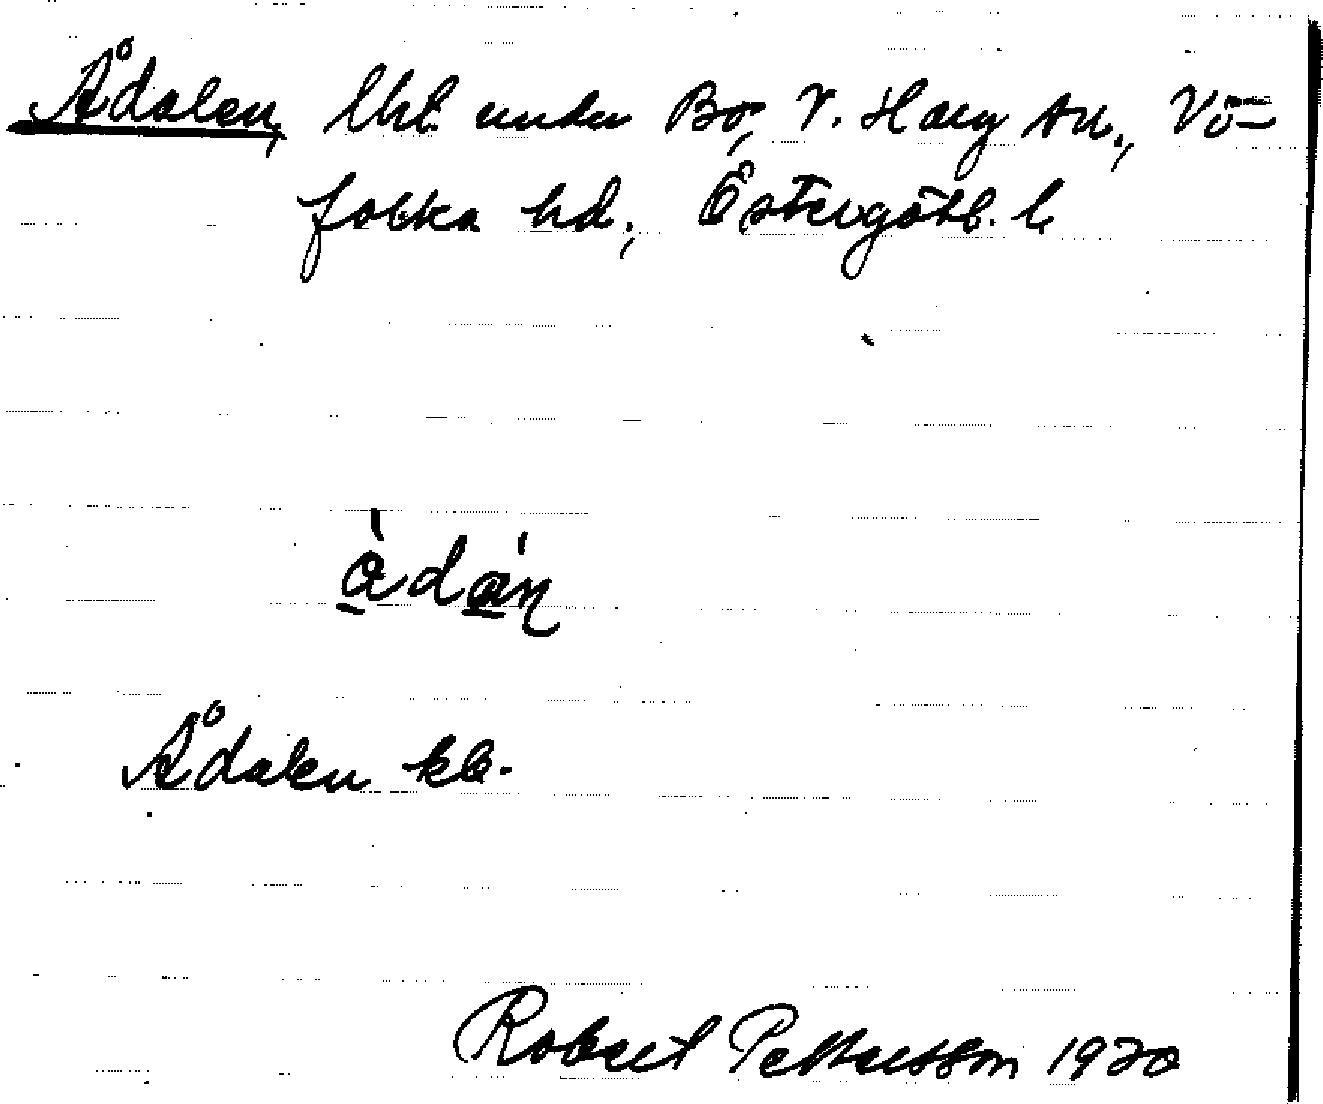 Ådalen, lht. under Bo, V. Harg sn., Vi-
folka hd., Östergötl. l.
å̀dǻṇ
Ådalen kb.
Robert Pettersson 1920